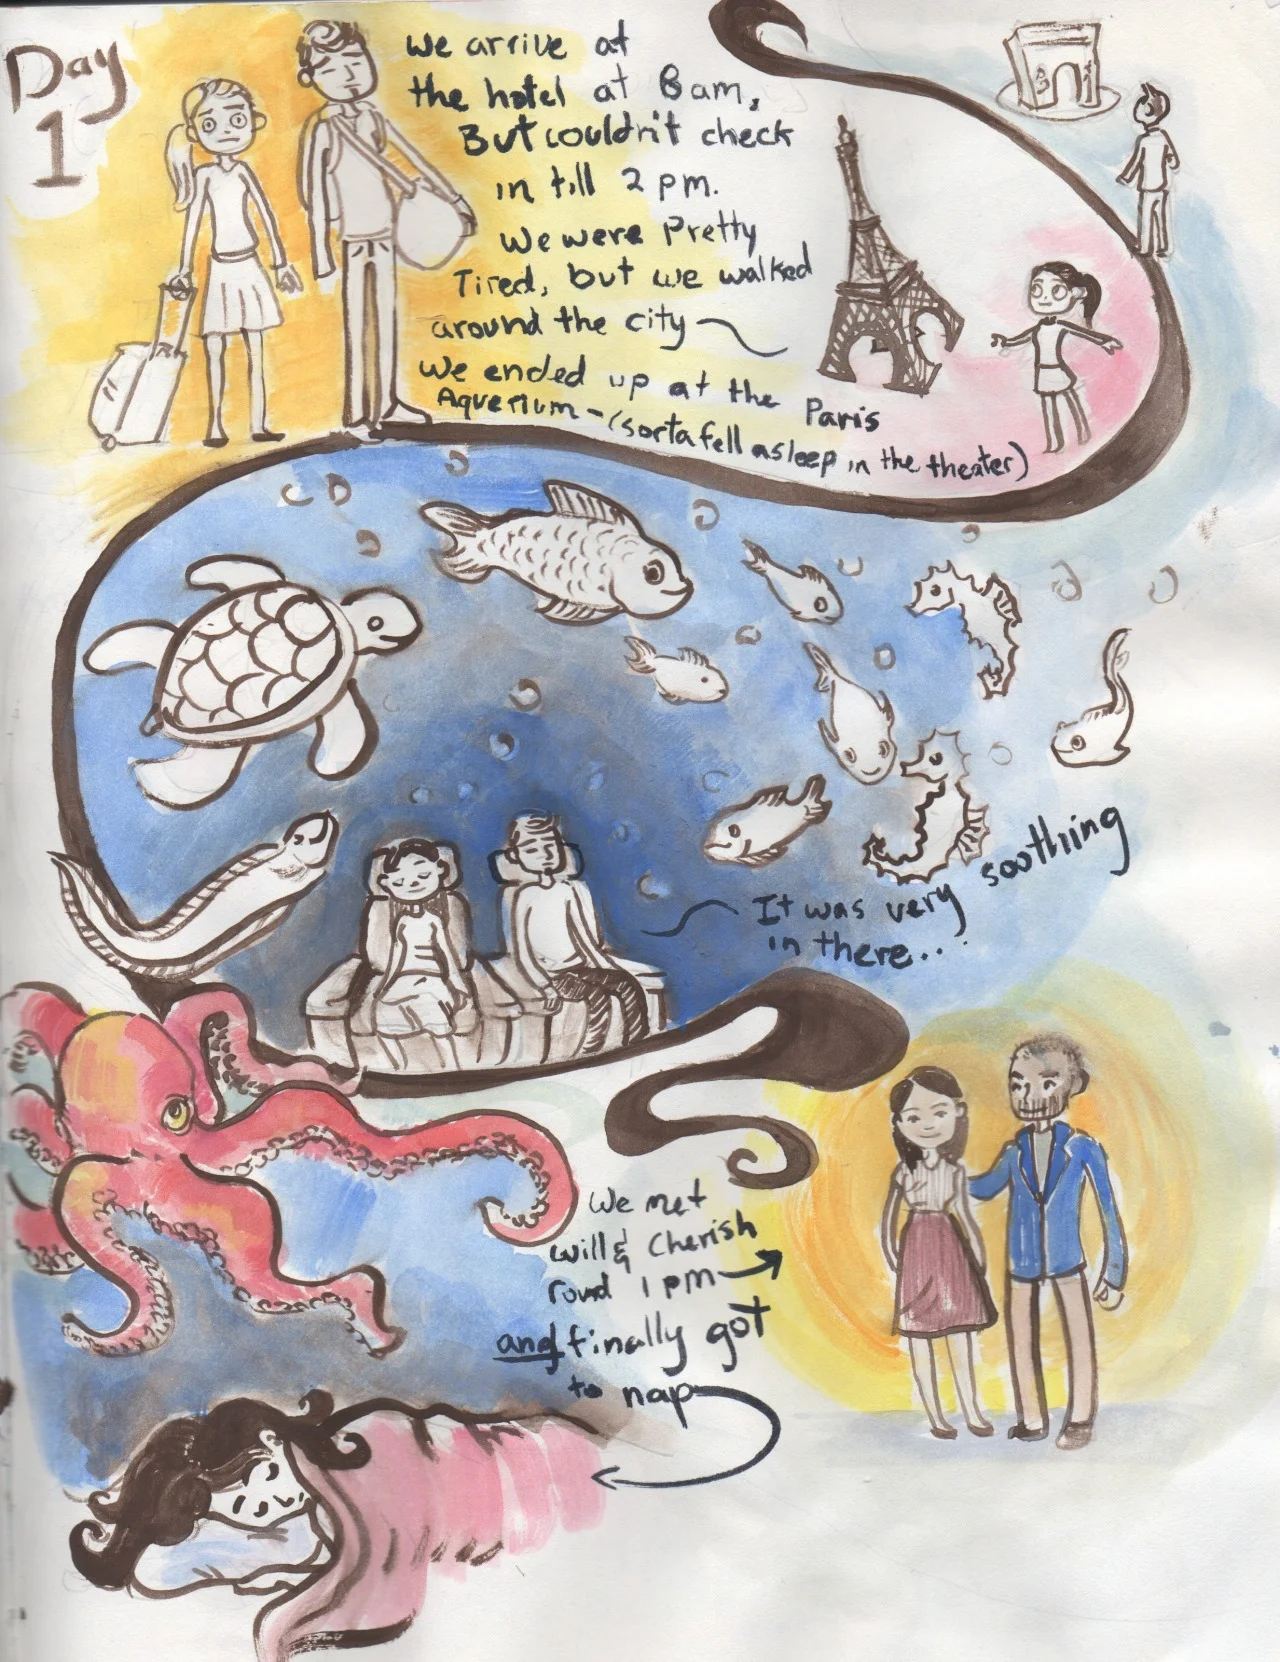 Day
1
We arrive at
the hotel at 8 am,
But couldn't check
in till 2 pm.
We were Pretty
Tired, but we walked
around the city
We ended up at the Paris
Aquerium - (sorta fell asleep in the theater)
It was very soothing
in there..
We met
Will & Cherish
round 1 pm
and finally got
to nap